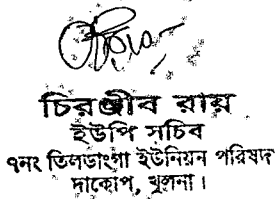 চিরঞ্জীব রায়
ইউপি সচিব
৭নং তিলডাংগা ইউনিয়ন পরিষদ
দাকোপ, খুলনা।